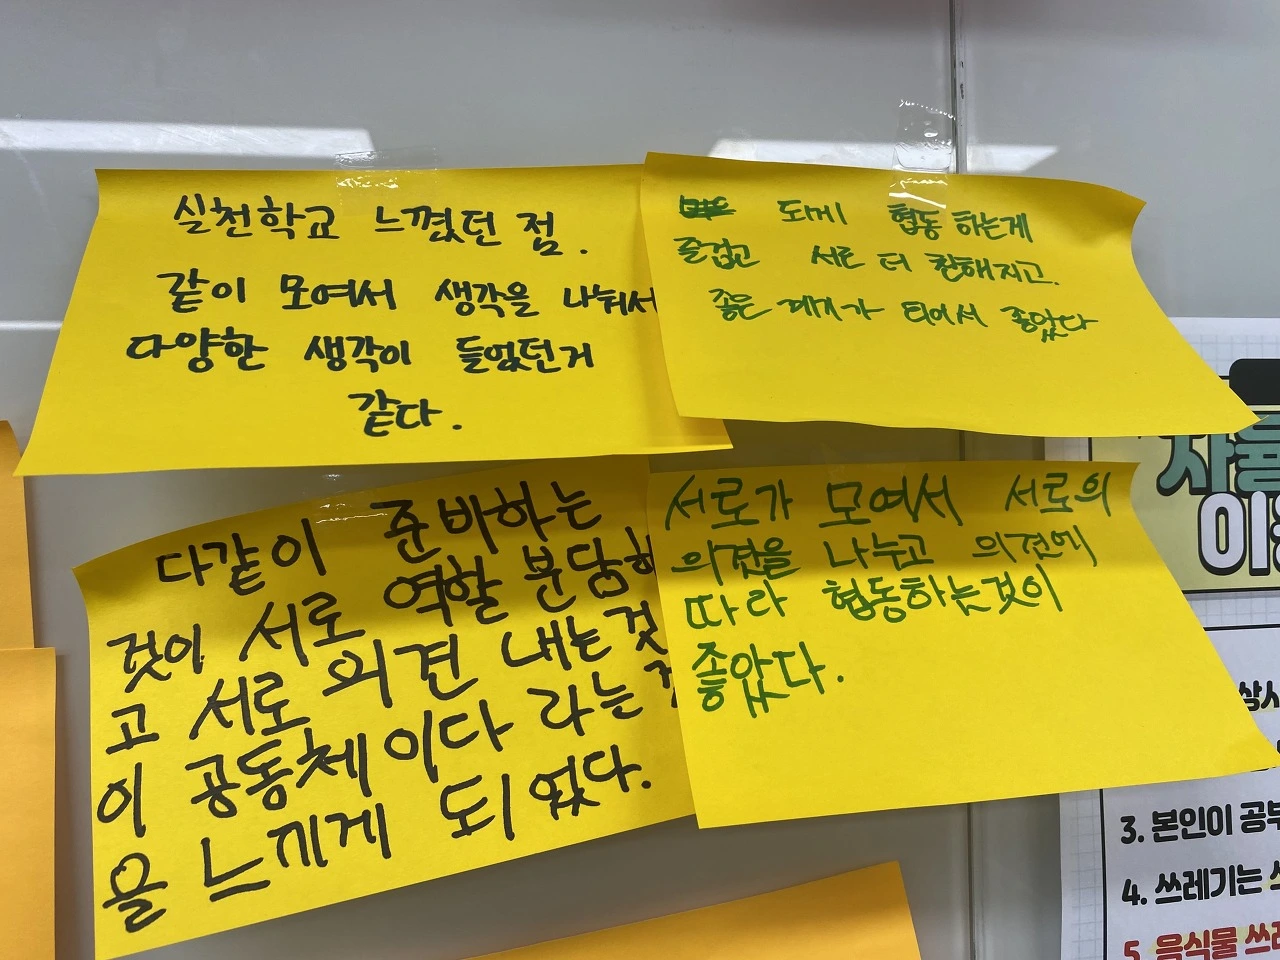 실천학교 느꼈던 점.
같이 모여서 생각을 나눠서
다양한 생각이 들었던거
같다.
되게 협동 하는게
즐겁고 서로 더 친해지고.
좋은 계기가 되어서 좋았다
다같이 준비하는
것이 서로 역할 분담하
고 서로 의견 내는것
이 공동체 이다 라는
을 느끼게 되었다.
서로가 모여서 서로의
의견을 나누고 의견에
따라 협동하는것이
좋았다.
자율
3. 본인이 공부
4. 쓰레기는
5. 음식물 쓰레